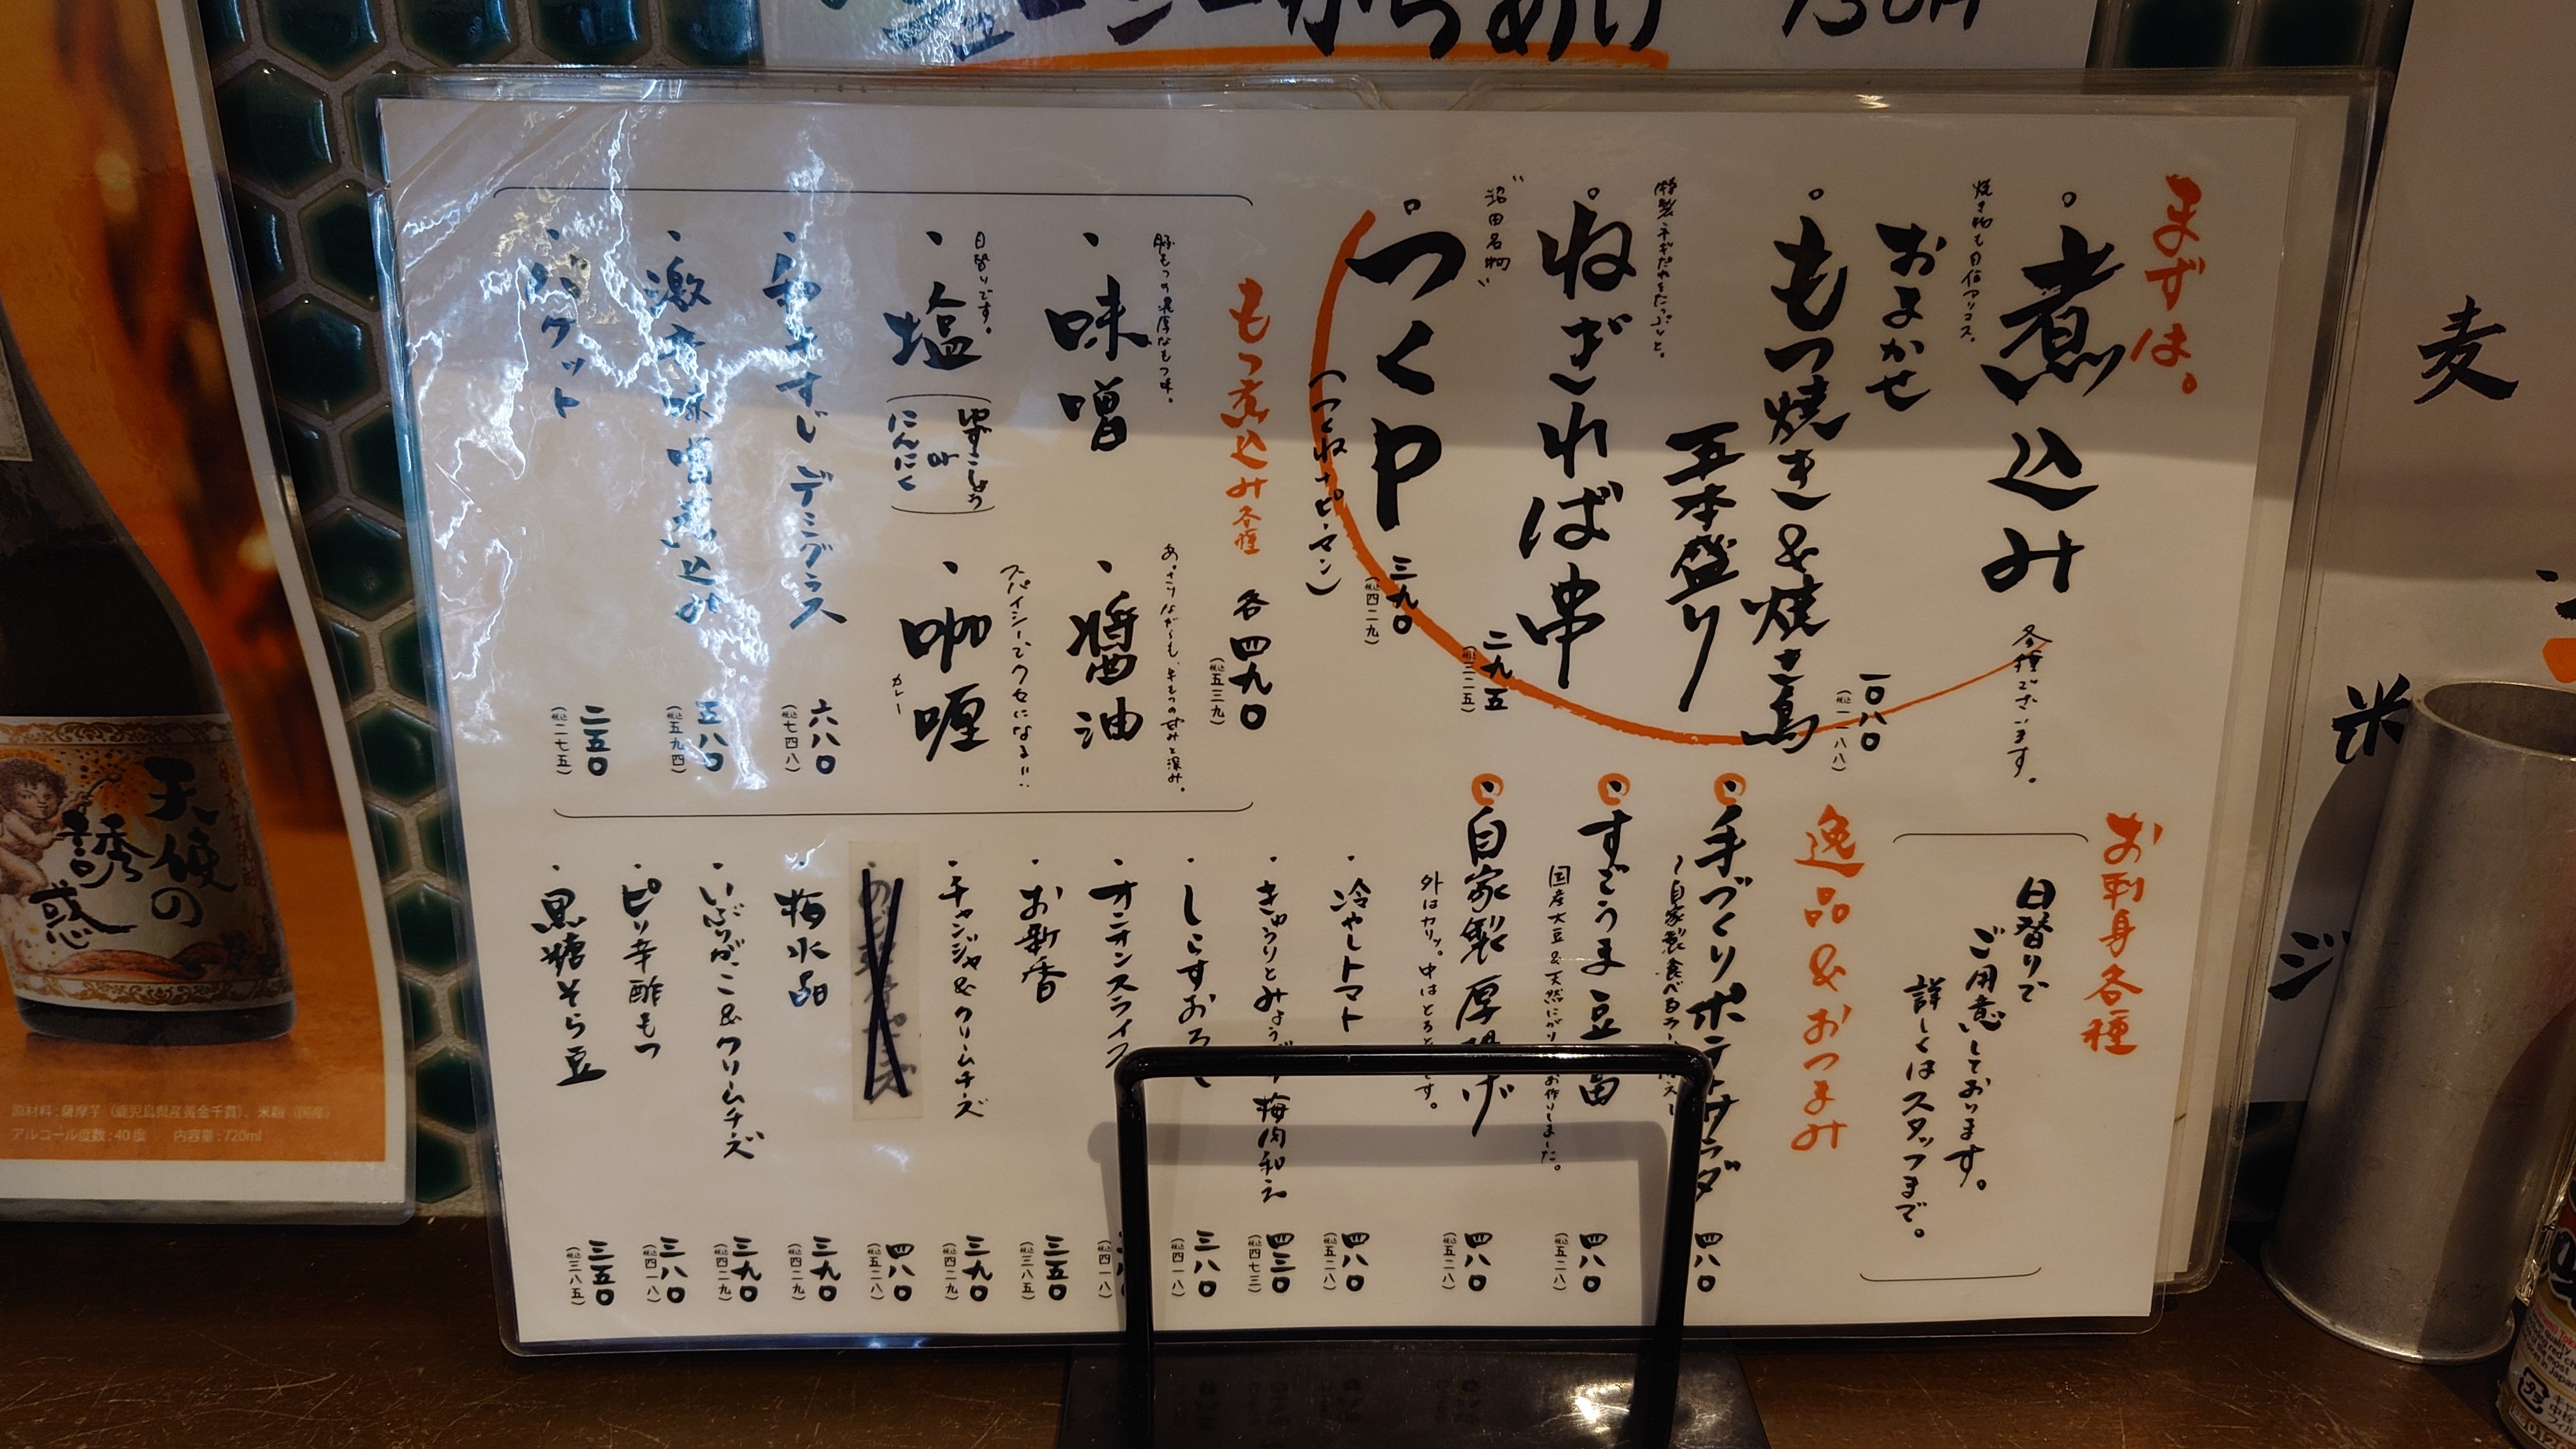 からあげ
まずは。
煮込み
各種ございます。
焼き物も自信アリコス。
おまかせ
もつ焼き&焼き鳥
五本盛り
一〇八〇
(税込一一八八)
特製ネギだれをたっぷりと。
ねぎればば串
二九五
(税込三二五)
"沼田名物"
つくP
(つくねナピーマン)
三九〇
(税込四二九)
もつ煮込み各種
各四九〇
(税込五三九)
豚もつの濃厚なもつ味。
・味噌
あっさりながらも、牛もつの甘みと深み。
・醤油
日替りです。
・塩
(ゆずこしょう
or
にんにく)
スパイシーでクセになる!!
・咖喱
カレー
すじデミグラス
六八〇
(税込七四八)
・激辛味噌煮込み
五八〇
(税込五九四)
・バケット
二五〇
(税込二七五)
お刺身各種
日替りで
ご用意しております。
詳しくはスタッフまで。
逸品&おつまみ
・手づくりポテトサラダ
〜自家製食べるラー
四八〇
・すごうま豆富
国産大豆&天然にがり
お作りしました。
四八〇
(税込五二八)
・自家製厚揚げ
外はカリッ。中はとろ
です。
四八〇
(税込五二八)
・冷やしトマト
四八〇
(税込五二八)
・きゅうりとみょうが
梅肉和え
四三〇
(税込四七三)
・しらすおろし
三八〇
(税込四一八)
・オニオンスライス
(税込四一八)
・お新香
三五〇
(税込三八五)
・チャンジャ&クリームチーズ
三九〇
(税込四二九)
四八〇
(税込五二八)
・梅水晶
三九〇
(税込四二九)
・いぶりがっこ&クリームチーズ
三九〇
(税込四二九)
・ピリ辛酢もつ
三八〇
(税込四一八)
・黒糖そら豆
三五〇
(税込三八五)
天使の
誘惑
原材料:薩摩芋(鹿児島県産黄金千貫)、米麹(国産)
アルコール度数:40度 内容量:720ml
麦
米
ジ